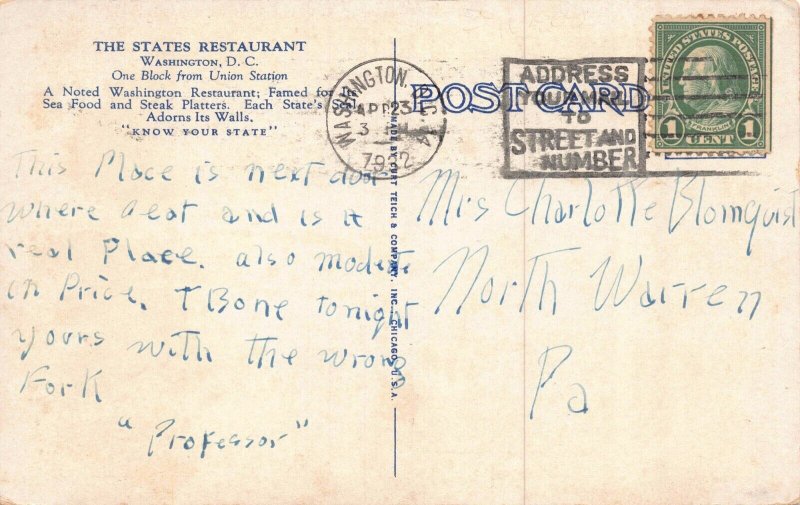 THE STATES RESTAURANT
WASHINGTON, D. C.
One Block from Union Station
A Noted Washington Restaurant; Famed for Its
Sea Food and Steak Platters. Each State's Seal
Adorns Its Walls.
"KNOW YOUR STATE"
This Place is next door
where I eat and is a
real Place. also modest
in Price. T Bone tonight
yours with the wrong
Fork
"Professor"
MADE BY CURT TEICH & COMPANY, INC., CHICAGO, U.S.A.
WASHINGTON, D.C.
APR 23
3 PM
1932
POST CARD
ADDRESS
YOUR MAIL
TO
STREET AND
NUMBER
UNITED STATES POSTAGE
FRANKLIN
1 CENT 1
Mrs Charlotte Blomquist
North Warren
Pa